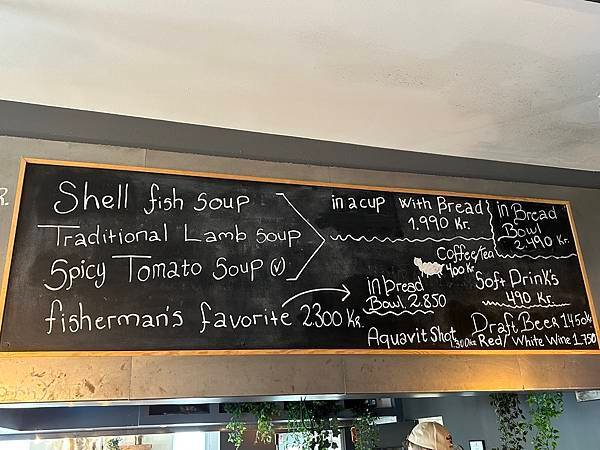 Shell fish soup
Traditional Lamb soup
Spicy Tomato Soup (v)
in a cup with Bread
1.990 Kr.
in Bread
Bowl
2.490 Kr.
fisherman's favorite 2300 Kr.
in bread
Bowl 2.850
Coffee/tea
400 Kr
Soft Drink's
490 Kr.
Draft Beer 1450 Kr
Aquavit Shot 1.300 Kr
Red/White Wine 1.750